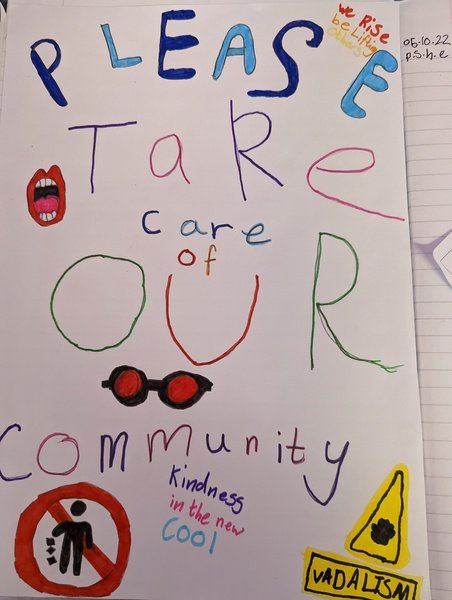 PLEASE
we Rise
be Lifting
others
06.10.22
p.s.h.e
TaKe
care
of
OUR
community
Kindness
in the new
COOl
VADALISM